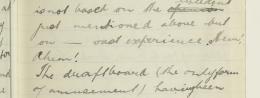 is not based on the
just mentioned above but
on — past experience. Ahem!
Ahem!
The draftboard (the only form
of amusement) having been